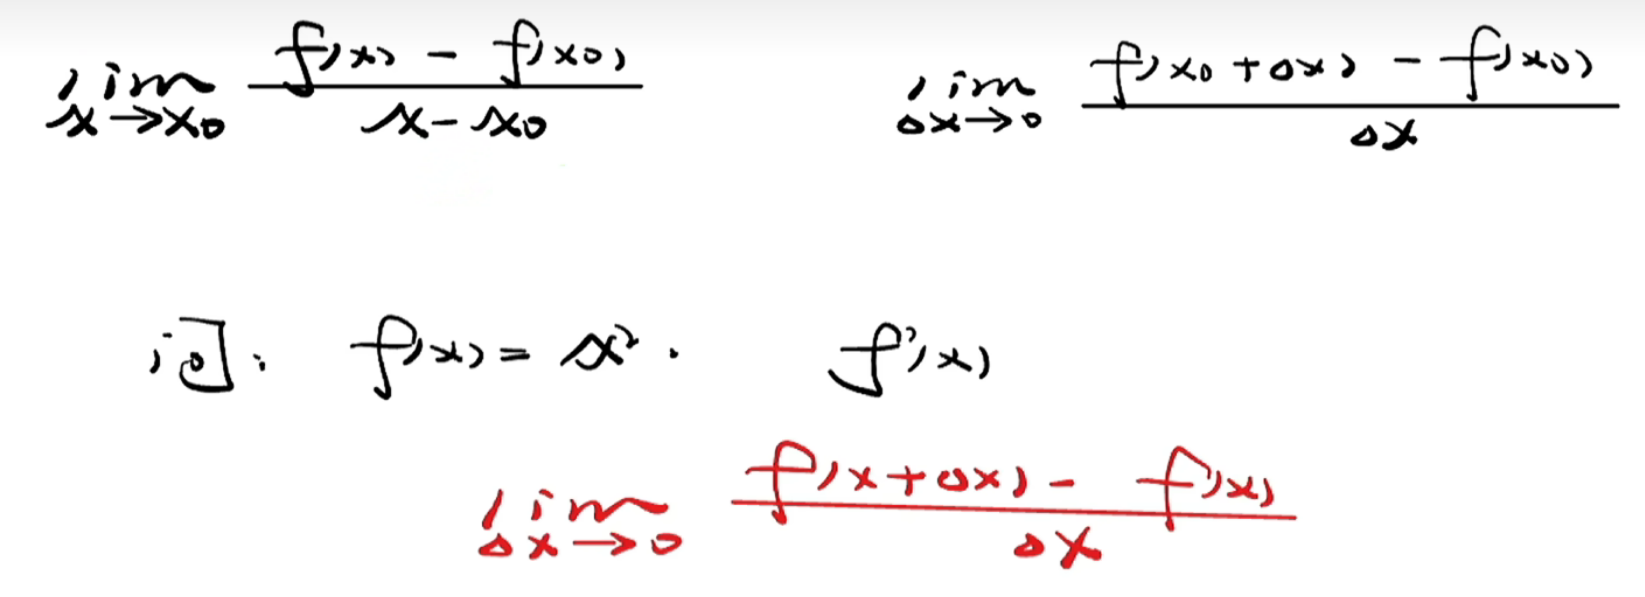 lim x→x0 f(x) - f(x0) / x - x0
lim Δx→0 f(x0 + Δx) - f(x0) / Δx
问: f(x) = x². f'(x)
lim Δx→0 f(x+Δx) - f(x) / Δx